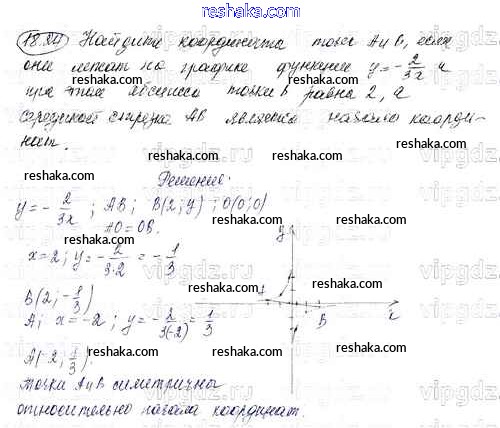 reshaka.com
18.24 Найдите координаты точек А и В, если
они лежат на графике функции y = -2/3x и
при этом абсцисса точки В равна 2, а
reshaka.com reshaka.com
серединой отрезка АВ является начало коорди-
нат.
reshaka.com reshaka.com
Решение:
y = -2/3x ; AB; B(2; y) ; O(0;0)
AO = OB.
reshaka.com reshaka.com
x = 2; y = -2/3·2 = -1/3
y
reshaka.com reshaka.com
B(2; -1/3)
A
B
x
A; x = -2; y = -2/3(-2) = 1/3
reshaka.com reshaka.com
A(-2; 1/3).
reshaka.com reshaka.com
точки А и В симметричны
относительно начала координат.
reshaka.com
vipgdz.ru